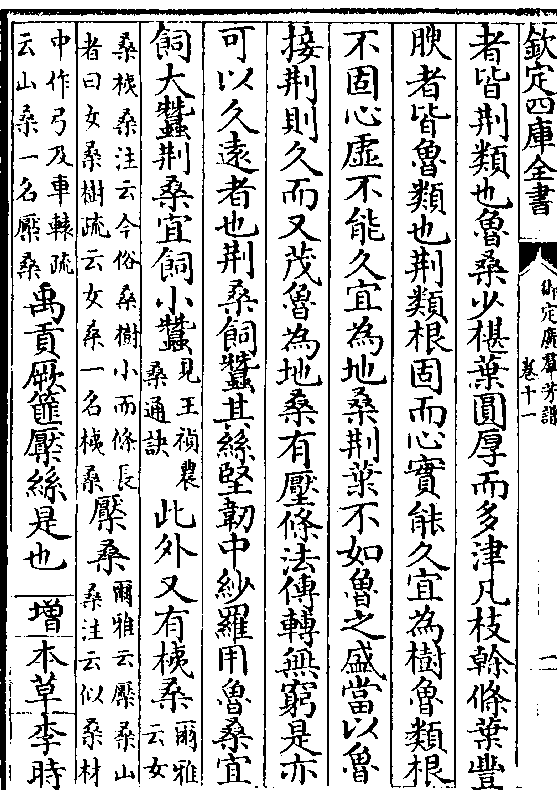 欽定四庫全書
御定廣羣芳譜
卷十一
者皆荆類也魯桑少椹葉圓厚而多津凡枝幹條葉豐
腴者皆魯類也荆類根固而心實能久宜為樹魯類根
不固心虛不能久宜為地桑荆葉不如魯之盛當以魯
接荆則久而又茂魯為地桑有壓條法傳轉無窮是亦
可以久遠者也荆桑飼蠶其絲堅韌中紗羅用魯桑宜
飼大蠶荆桑宜飼小蠶見王禎農桑通訣此外又有桋桑爾雅云女
桑桋桑注云今俗桑樹小而條長者曰女桑樹疏云女桑一名桋桑檿桑爾雅云檿桑山桑注云似桑材
中作弓及車轅疏云山桑一名檿桑禹貢厥篚檿絲是也增本草李時